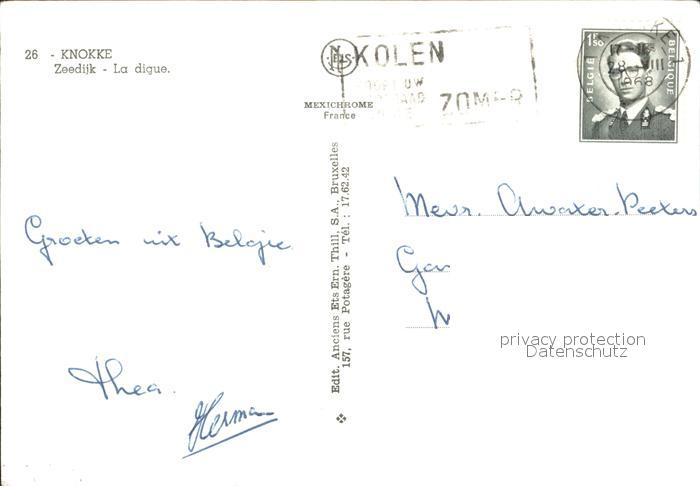 26 - KNOKKE
Zeedijk - La digue.
NELS
MEXICHROME
France
KOLEN
UW
ZOMER
1F50
BELGIË
BELGIQUE
17
28 VIII
1968
Groeten uit België
Thea.
Herman
Edit. Anciens Ets Ern. Thill, S.A., Bruxelles
157, rue Potagère - Tél.: 17.62.42
Mevr. Awater-Peeters
privacy protection
Datenschutz